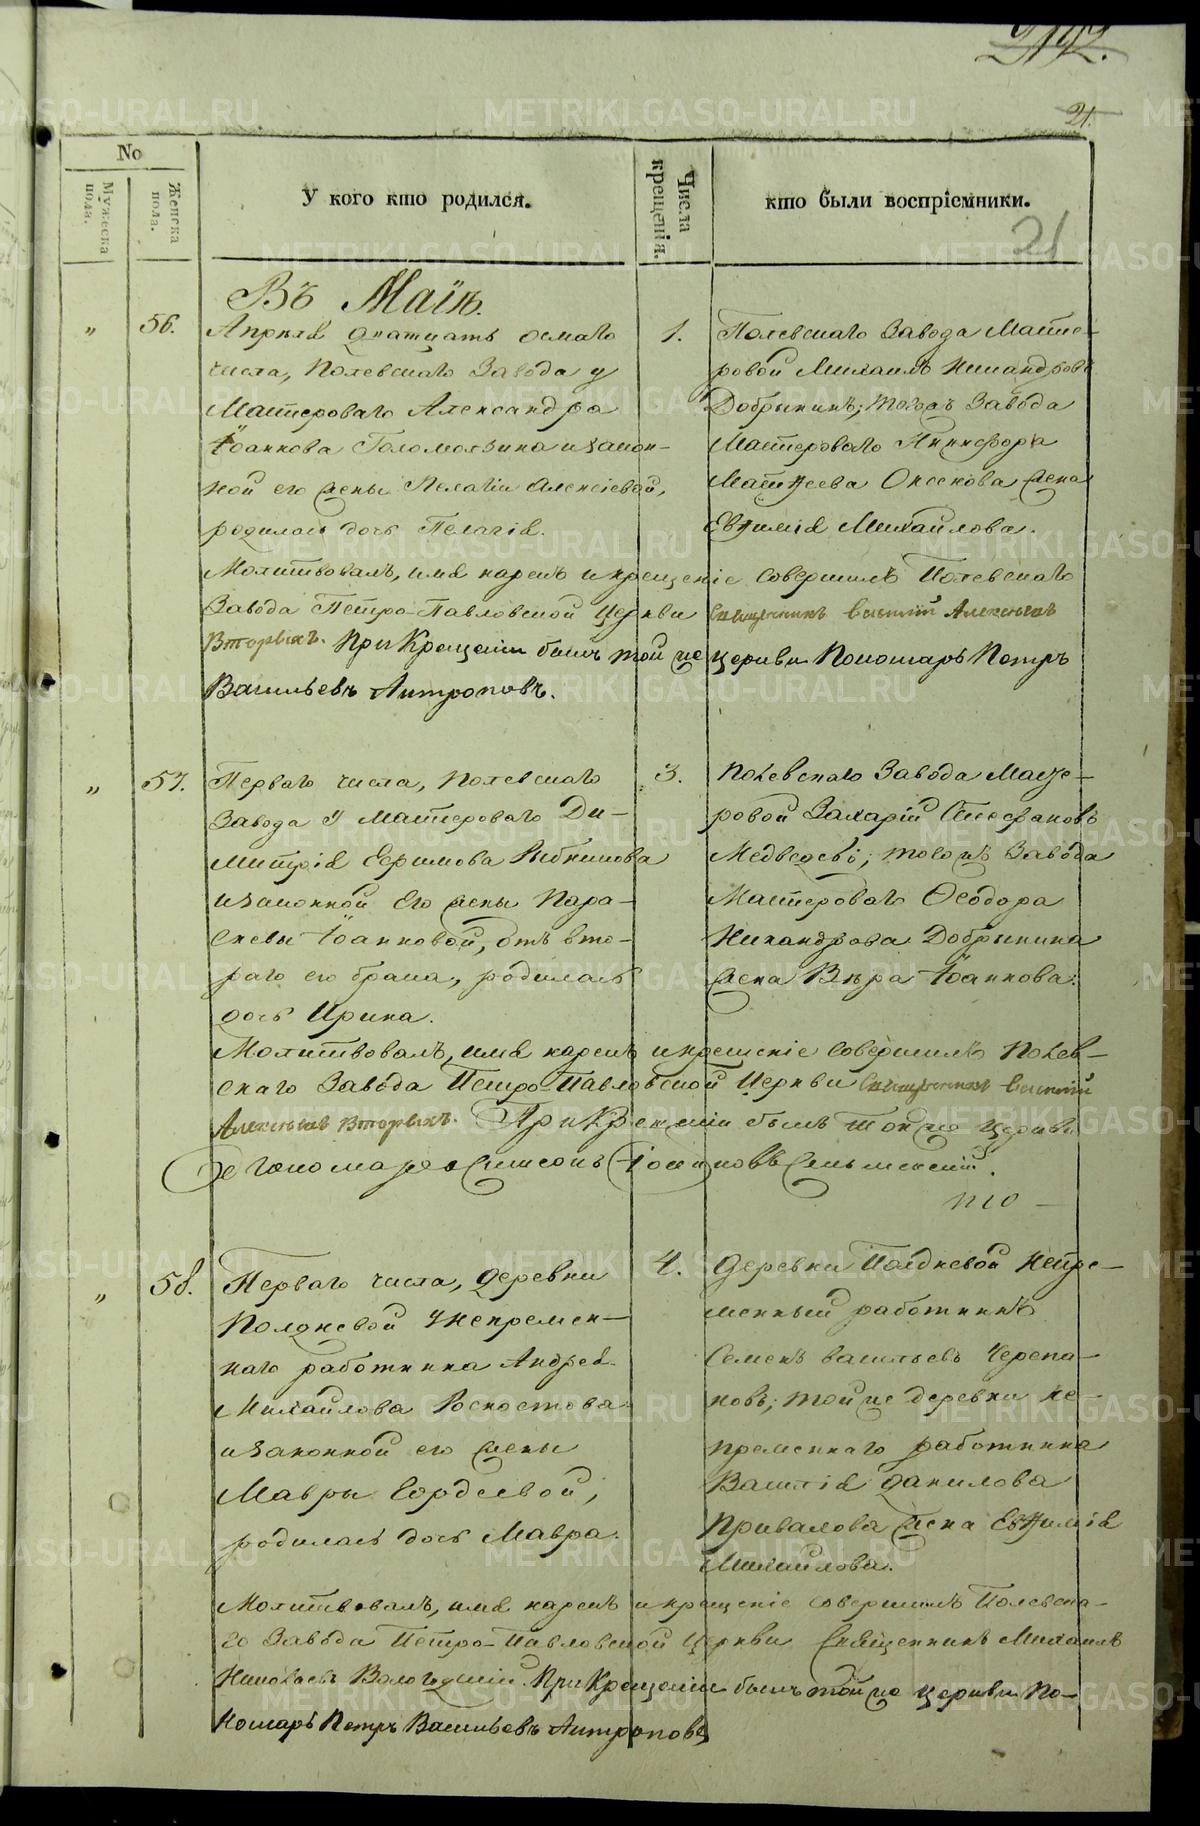 21.
No
Мужеска пола.
Женска пола.
У кого кто родился.
Числа крещенія.
кто были воспріемники.
21
Въ Маіѣ.
„ 56.
Апрѣля дватцать осмаго
числа, Полевскаго Завода у
Мастероваго Александра
Іоаннова Голомолзина и закон-
ной его жены Пелагіи Алексіевой,
родилась дочь Пелагія.
1.
Полевскаго Завода Масте-
ровой Михаилъ Никандровъ
Добрынинъ; тогожъ Завода
Мастероваго Никифора
Матѳеева Оксенова жена
Евѳимія Михайлова.
Молитвовалъ, имя нарекъ и крещеніе совершилъ Полевскаго
Завода Петро-Павловской Церкви Священникъ Василій Алексѣевъ
Вторыхъ. При Крещеніи былъ той же церкви Пономарь Петръ
Васильевъ Антроповъ.
„ 57.
Перваго числа, Полевскаго
Завода у Мастероваго Ди-
митрія Ефимова Рыбникова
и законной его жены Пара-
скевы Іоанновой, отъ вто-
раго его брака, родилась
дочь Ирина.
3.
Полевскаго Завода Масте-
ровой Захарій Стефановъ
Медведевъ; тогожъ Завода
Мастероваго Ѳеодора
Никандрова Добрынина
жена Вѣра Іоаннова.
Молитвовалъ, имя нарекъ и крещеніе совершилъ Полев-
скаго Завода Петро-Павловской Церкви Священникъ Василій
Алексѣевъ Вторыхъ. При Крещеніи былъ той же церкви
пономарь Симеонъ
„ 58.
Перваго числа, деревни
Полдневой у непремен-
наго работника Андрея
Михайлова
и законной его жены
Мавры Гордеевой,
родилась дочь Мавра.
4.
Деревни Полдневой Непре-
менный работникъ
Семенъ Васильевъ Черепа-
новъ; той же деревни не-
пременнаго работника
Василія Данилова
Привалова жена Евѳимія
Михайлова.
Молитвовалъ, имя нарекъ и крещеніе совершилъ Полевска-
го Завода Петро-Павловской Церкви Священникъ Михаилъ
Николаевъ Вологодскій. При Крещеніи былъ той же церкви По-
номарь Петръ Васильевъ Антроповъ